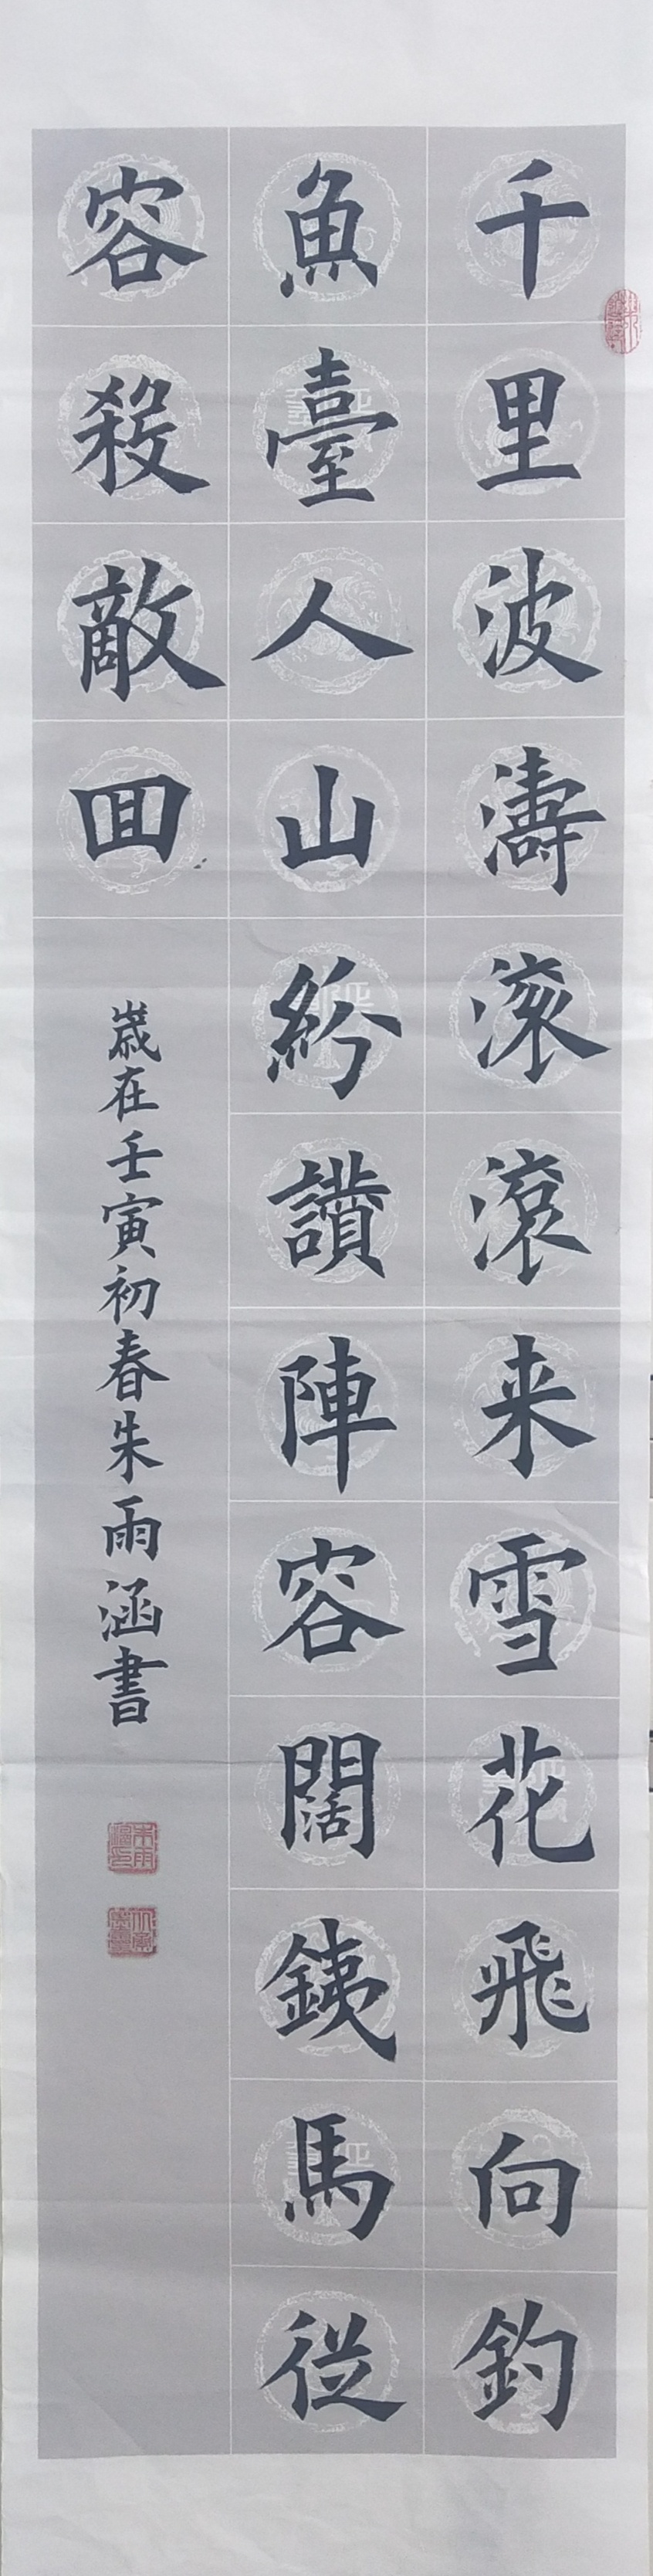 千里波濤滚滚来雪花飛向釣
魚臺人山紛讚陣容闊銕馬從
容殺敵回
歲在壬寅初春朱雨涵書
朱雨涵印